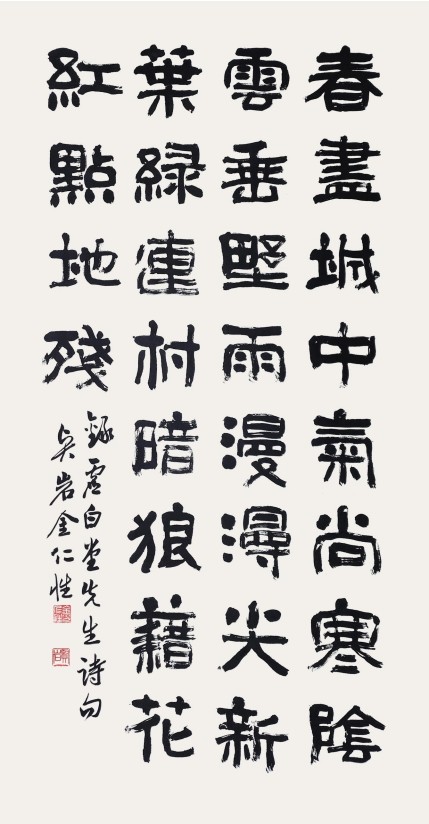 春盡城中氣尚寒陰
雲垂野雨漫漫尖新
葉綠連村暗狼藉花
紅點地殘
錄虛白堂先生詩句
岩金仁性